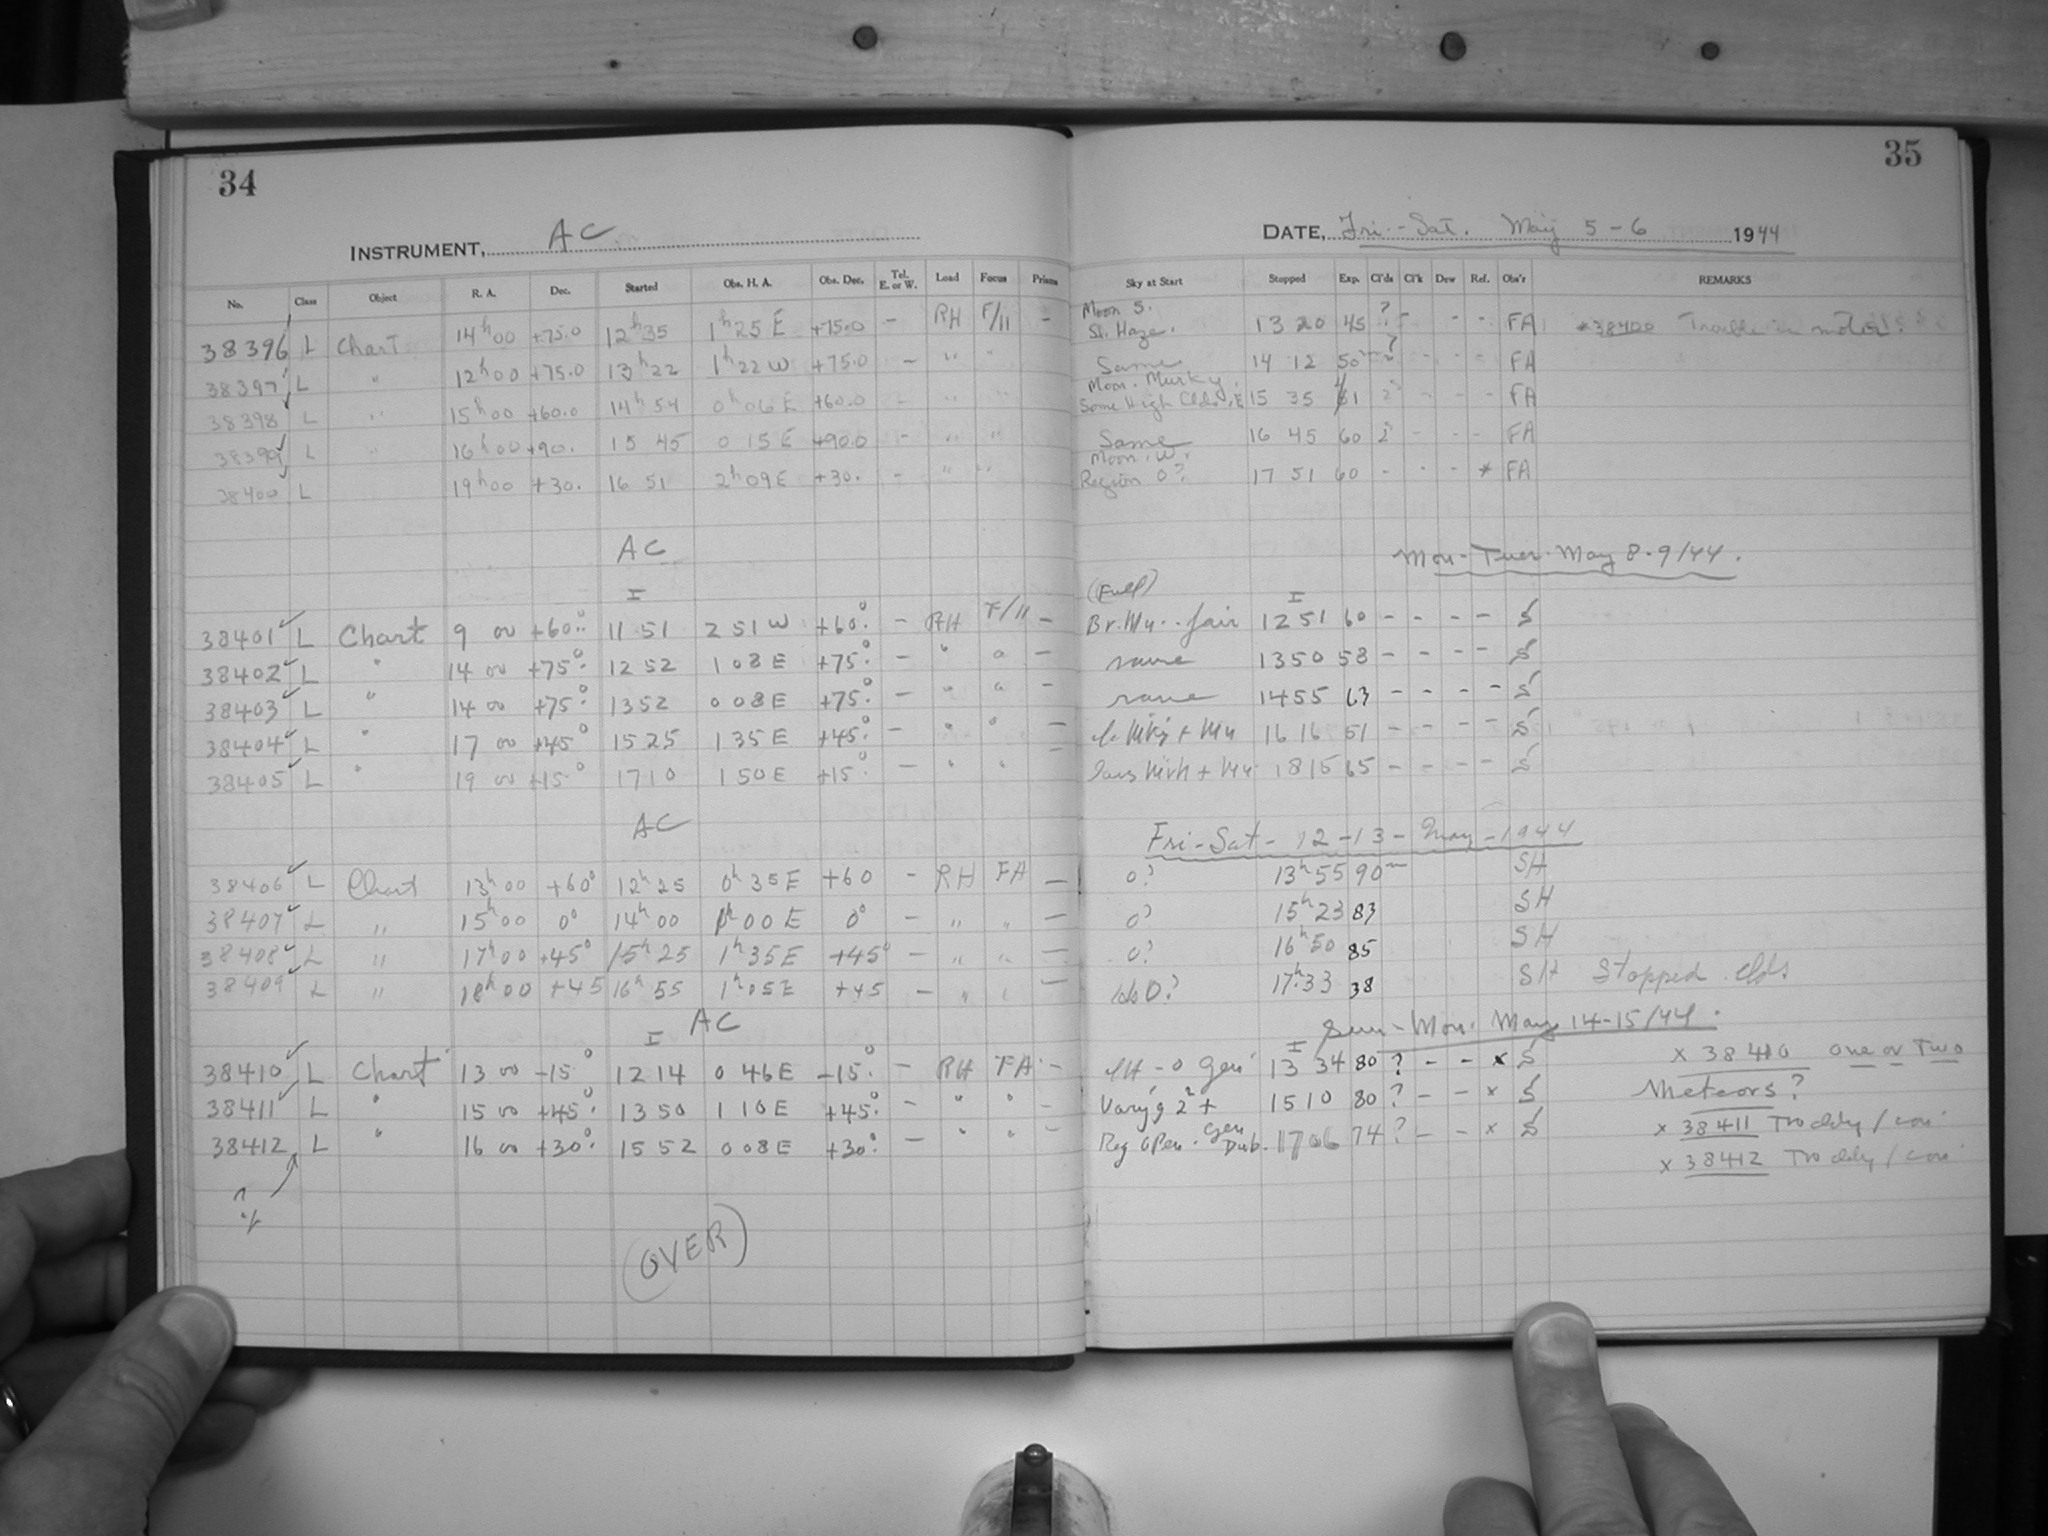 34
35
INSTRUMENT, AC
DATE, Fri.-Sat. May 5-6 1944
No. Class Object R. A. Dec. Started Obs. H. A. Obs. Dec. Tel. E. or W. Load Focus Prisms Sky at Start Stopped Exp. Cl'ds Cl'k Dew Ref. Obs'r REMARKS
38396 L Chart 14h00 +75.0 12h35 1h25 E +75.0 - RH F/11 - Moon S. Sl. Haze. 13 20 45 ? - - - FA *38400 Trouble in motor?
38397 L " 12h00 +75.0 13h22 1h22 W +75.0 - " " Same 14 12 50 ? - - - FA
38398 L " 15h00 +60.0 14h54 0h06 E +60.0 - " " Moon. Murky. Some High Clds, E 15 35 41 2 - - - FA
38399 L " 16h00 +90. 15 45 0 15 E +90.0 - " " Same 16 45 60 2 - - - FA
38400 L 19h00 +30. 16 51 2h09 E +30. - " " Moon. W. Region 0? 17 51 60 - - - * FA
AC Mon-Tues. May 8-9/44.
I (Full) I
38401 L Chart 9 00 +60° 11 51 2 51 W +60° - RH F/11 - Br. Mn. fair 12 51 60 - - - - S
38402 L " 14 00 +75° 12 52 1 08 E +75° - " " - same 13 50 58 - - - - S
38403 L " 14 00 +75° 13 52 0 08 E +75° - " " - same 14 55 63 - - - - S
38404 L " 17 00 +45° 15 25 1 35 E +45° - " " - + Mn 16 16 51 - - - - S
38405 L " 19 00 +15° 17 10 1 50 E +15° - " " - + Mn 18 15 65 - - - - S
AC Fri-Sat-12-13-May-1944
38406 L Chart 13h00 +60° 12h25 0h35 E +60 - RH FA - 0? 13h55 90m SH
38407 L " 15h00 0° 14h00 1h00 E 0° - " " - 0? 15h23 83 SH
38408 L " 17h00 +45° 15h25 1h35 E +45° - " " - 0? 16h50 85 SH
38409 L " 18h00 +45 16h55 1h05 E +45 - " " - 0? 17h33 38 SH Stopped. Clds
AC Sun-Mon. May 14-15/44.
I I
38410 L Chart 13 00 -15° 12 14 0 46 E -15° - RH FA - 0 Gen 13 34 80 ? - - x S x 38410 one or Two
38411 L " 15 00 +45° 13 50 1 10 E +45° - " " - Vary'g 2+ 15 10 80 ? - - x S Meteors?
38412 L " 16 00 +30° 15 52 0 08 E +30° - " " - Reg open. Gen Dub. 17 06 74 ? - - x S x 38411
x 38412
(OVER)